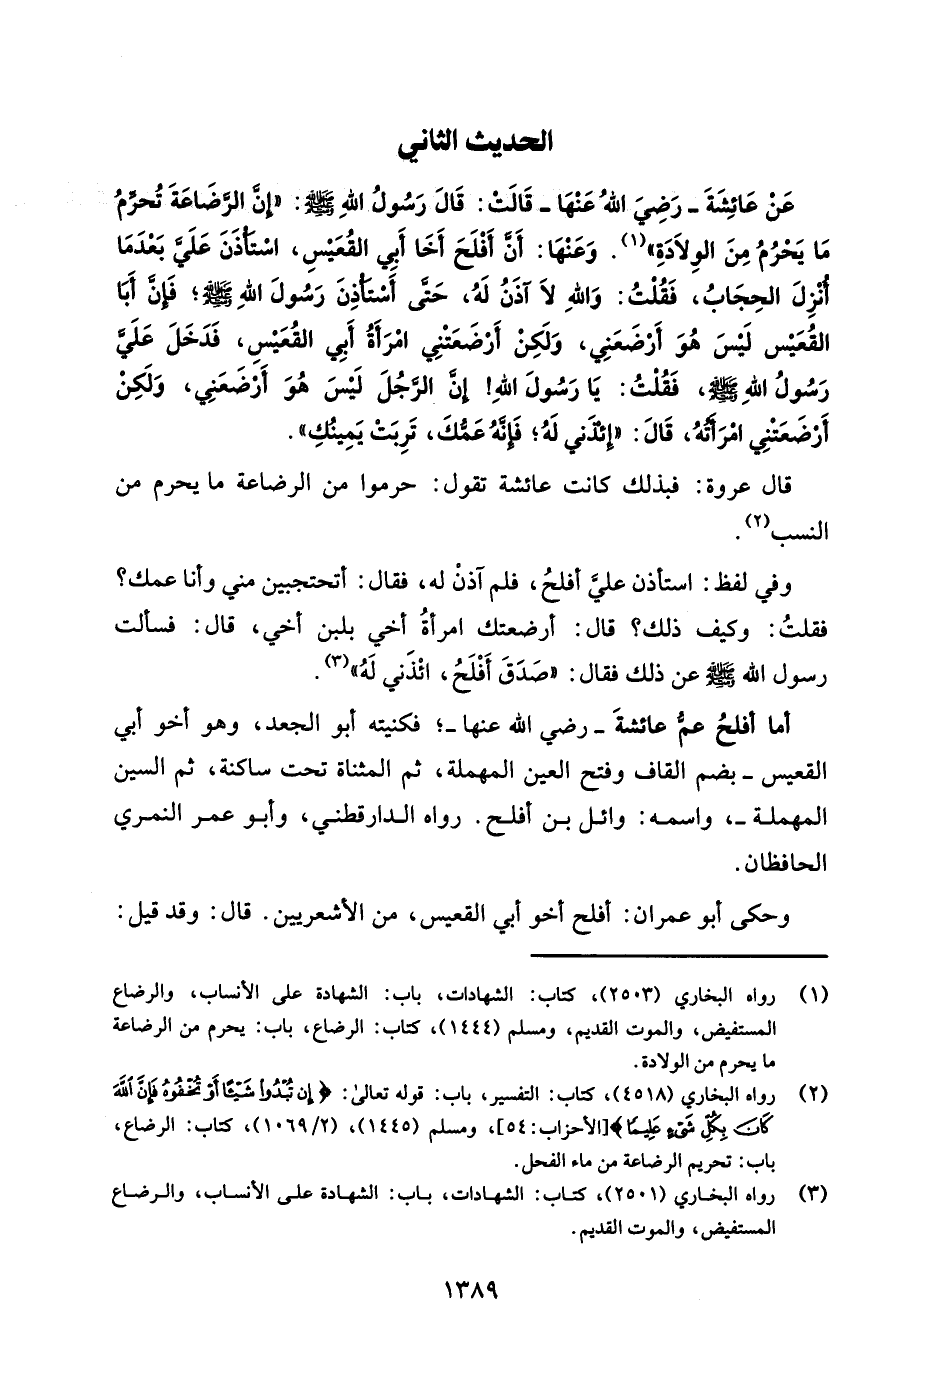 الحديث الثاني
عَنْ عَائِشَةَ ـ رَضِيَ اللهُ عَنْهَا ـ قَالَتْ: قَالَ رَسُولُ اللهِ ﷺ: «إِنَّ الرَّضَاعَةَ تُحَرِّمُ
مَا يَحْرُمُ مِنَ الوِلاَدَةِ»(١). وَعَنْهَا: أَنَّ أَفْلَحَ أَخَا أَبِي القُعَيْسِ، اسْتَأْذَنَ عَلَيَّ بَعْدَمَا
أُنْزِلَ الحِجَابُ، فَقُلْتُ: وَاللهِ لاَ آذَنُ لَهُ، حَتَّى أَسْتَأْذِنَ رَسُولَ اللهِ ﷺ؛ فَإِنَّ أَبَا
القُعَيْسِ لَيْسَ هُوَ أَرْضَعَنِي، وَلَكِنْ أَرْضَعَتْنِي امْرَأَةُ أَبِي القُعَيْسِ، فَدَخَلَ عَلَيَّ
رَسُولُ اللهِ ﷺ، فَقُلْتُ: يَا رَسُولَ اللهِ! إِنَّ الرَّجُلَ لَيْسَ هُوَ أَرْضَعَنِي، وَلَكِنْ
أَرْضَعَتْنِي امْرَأَتُهُ، قَالَ: «إِئْذَنِي لَهُ؛ فَإِنَّهُ عَمُّكَ، تَرِبَتْ يَمِينُكِ».
قال عروة: فبذلك كانت عائشة تقول: حرموا من الرضاعة ما يحرم من
النسب(٢).
وفي لفظ: استأذن عليَّ أفلحُ، فلم آذنْ له، فقال: أتحتجبين مني وأنا عمك؟
فقلتُ: وكيف ذلك؟ قال: أرضعتك امرأةُ أخي بلبن أخي، قال: فسألت
رسول الله ﷺ عن ذلك فقال: «صَدَقَ أَفْلَحُ، ائْذَنِي لَهُ»(٣).
أما أفلحُ عمُّ عائشةَ ـ رضي الله عنها ـ؛ فكنيته أبو الجعد، وهو أخو أبي
القعيس ـ بضم القاف وفتح العين المهملة، ثم المثناة تحت ساكنة، ثم السين
المهملة ـ، واسمه: وائل بن أفلح. رواه الدارقطني، وأبو عمر النمري
الحافظان.
وحكى أبو عمران: أفلح أخو أبي القعيس، من الأشعريين. قال: وقد قيل:
(١) رواه البخاري (٢٥٠٣)، كتاب: الشهادات، باب: الشهادة على الأنساب، والرضاع
المستفيض، والموت القديم، ومسلم (١٤٤٤)، كتاب: الرضاع، باب: يحرم من الرضاعة
ما يحرم من الولادة.
(٢) رواه البخاري (٤٥١٨)، كتاب: التفسير، باب: قوله تعالىٰ: ﴿إِن تُبْدُوا شَيْئًا أَوْ تُخْفُوهُ فَإِنَّ ٱللَّهَ
كَانَ بِكُلِّ شَىْءٍ عَلِيمًا﴾[الأحزاب: ٥٤]، ومسلم (١٤٤٥)، (٢/ ١٠٦٩)، كتاب: الرضاع،
باب: تحريم الرضاعة من ماء الفحل.
(٣) رواه البخاري (٢٥٠١)، كتاب: الشهادات، باب: الشهادة على الأنساب، والرضاع
المستفيض، والموت القديم.
١٣٨٩